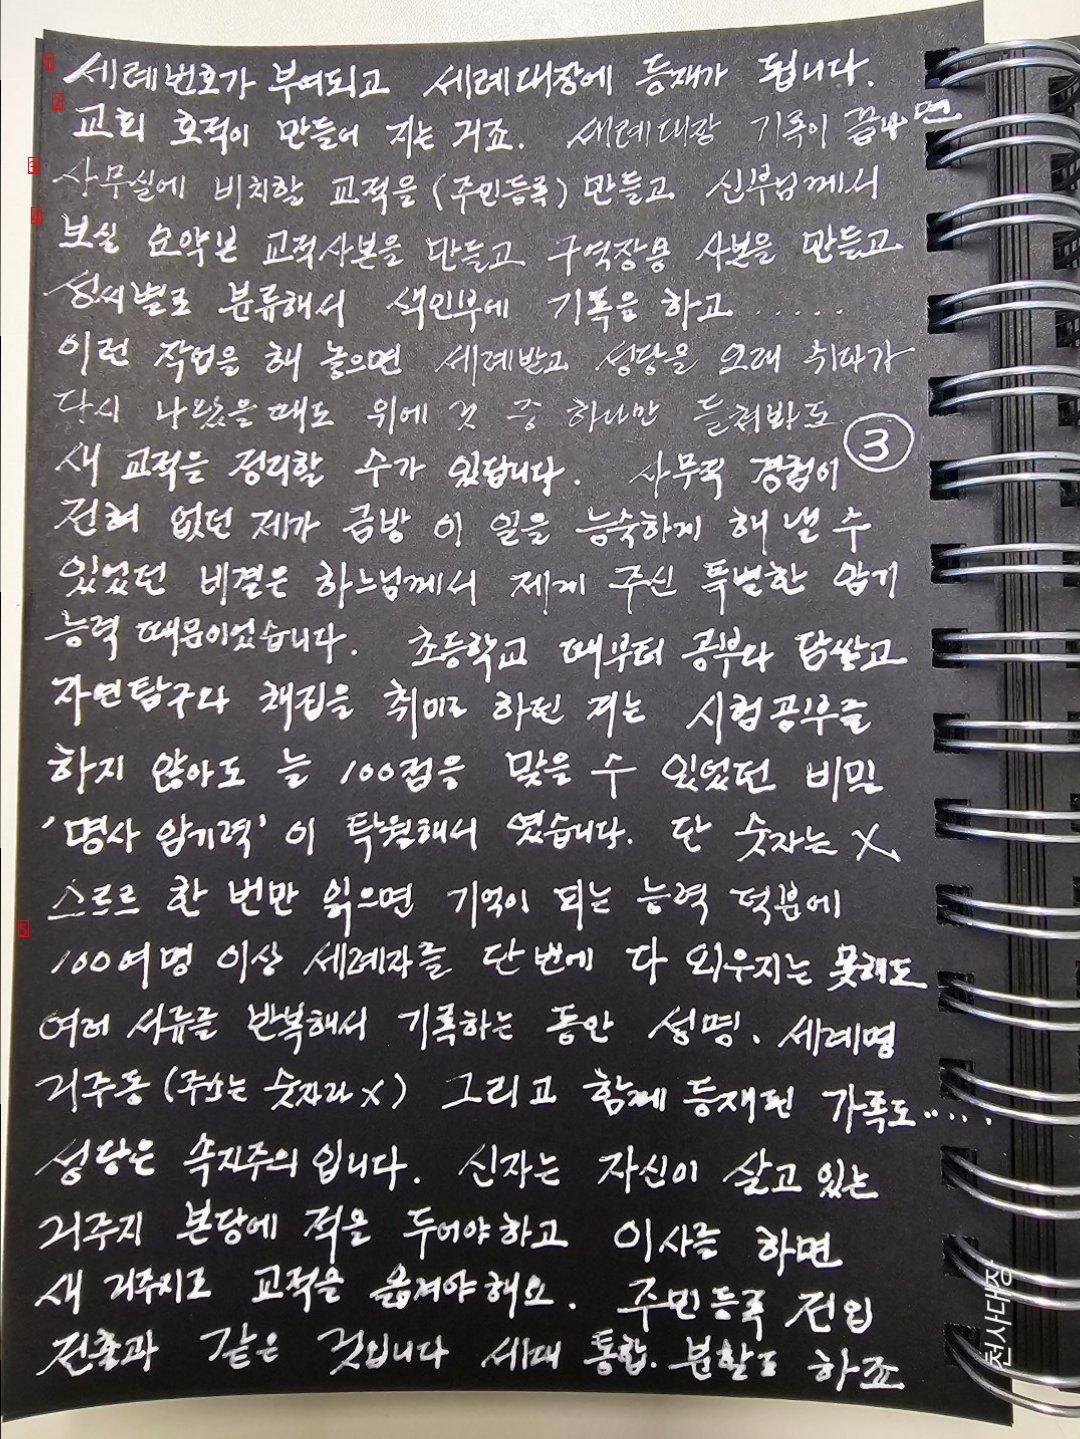 세례번호가 부여되고 세례대장에 등재가 됩니다.
교회 호적이 만들어 지는 거죠. 세례대장 기록이 끝나면
사무실에 비치할 교적을 (주민등록) 만들고 신부님께서
보실 요약본 교적사본을 만들고 구역장용 사본을 만들고
성씨별로 분류해서 색인부에 기록을 하고 .....
이런 작업을 해 놓으면 세례받고 성당을 오래 쉬다가
다시 나왔을 때도 위에 것 중 하나만 들쳐봐도
③
새 교적을 정리할 수가 있답니다. 사무직 경험이
전혀 없던 제가 금방 이 일을 능숙하게 해 낼 수
있었던 비결은 하느님께서 제게 주신 특별한 암기
능력 때문이었습니다. 초등학교 때부터 공부와 담쌓고
자연탐구와 채집을 취미로 하던 저는 시험공부를
하지 않아도 늘 100점을 맞을 수 있었던 비밀
'명사 암기력'이 탁월해서 였습니다. 단 숫자는 X
스르르 한 번만 읽으면 기억이 되는 능력 덕분에
100여명 이상 세례자를 단번에 다 외우지는 못해도
여러 서류를 반복해서 기록하는 동안 성명, 세례명
거주동 (주소는 숫자라 X) 그리고 함께 등재된 가족도.....
성당은 속지주의 입니다. 신자는 자신이 살고 있는
거주지 본당에 적을 두어야 하고 이사를 하면
새 거주지로 교적을 옮겨야 해요. 주민등록 전입
전출과 같은 것입니다 세대 통합. 분할도 하죠
천사대장
1
2
3
4
5